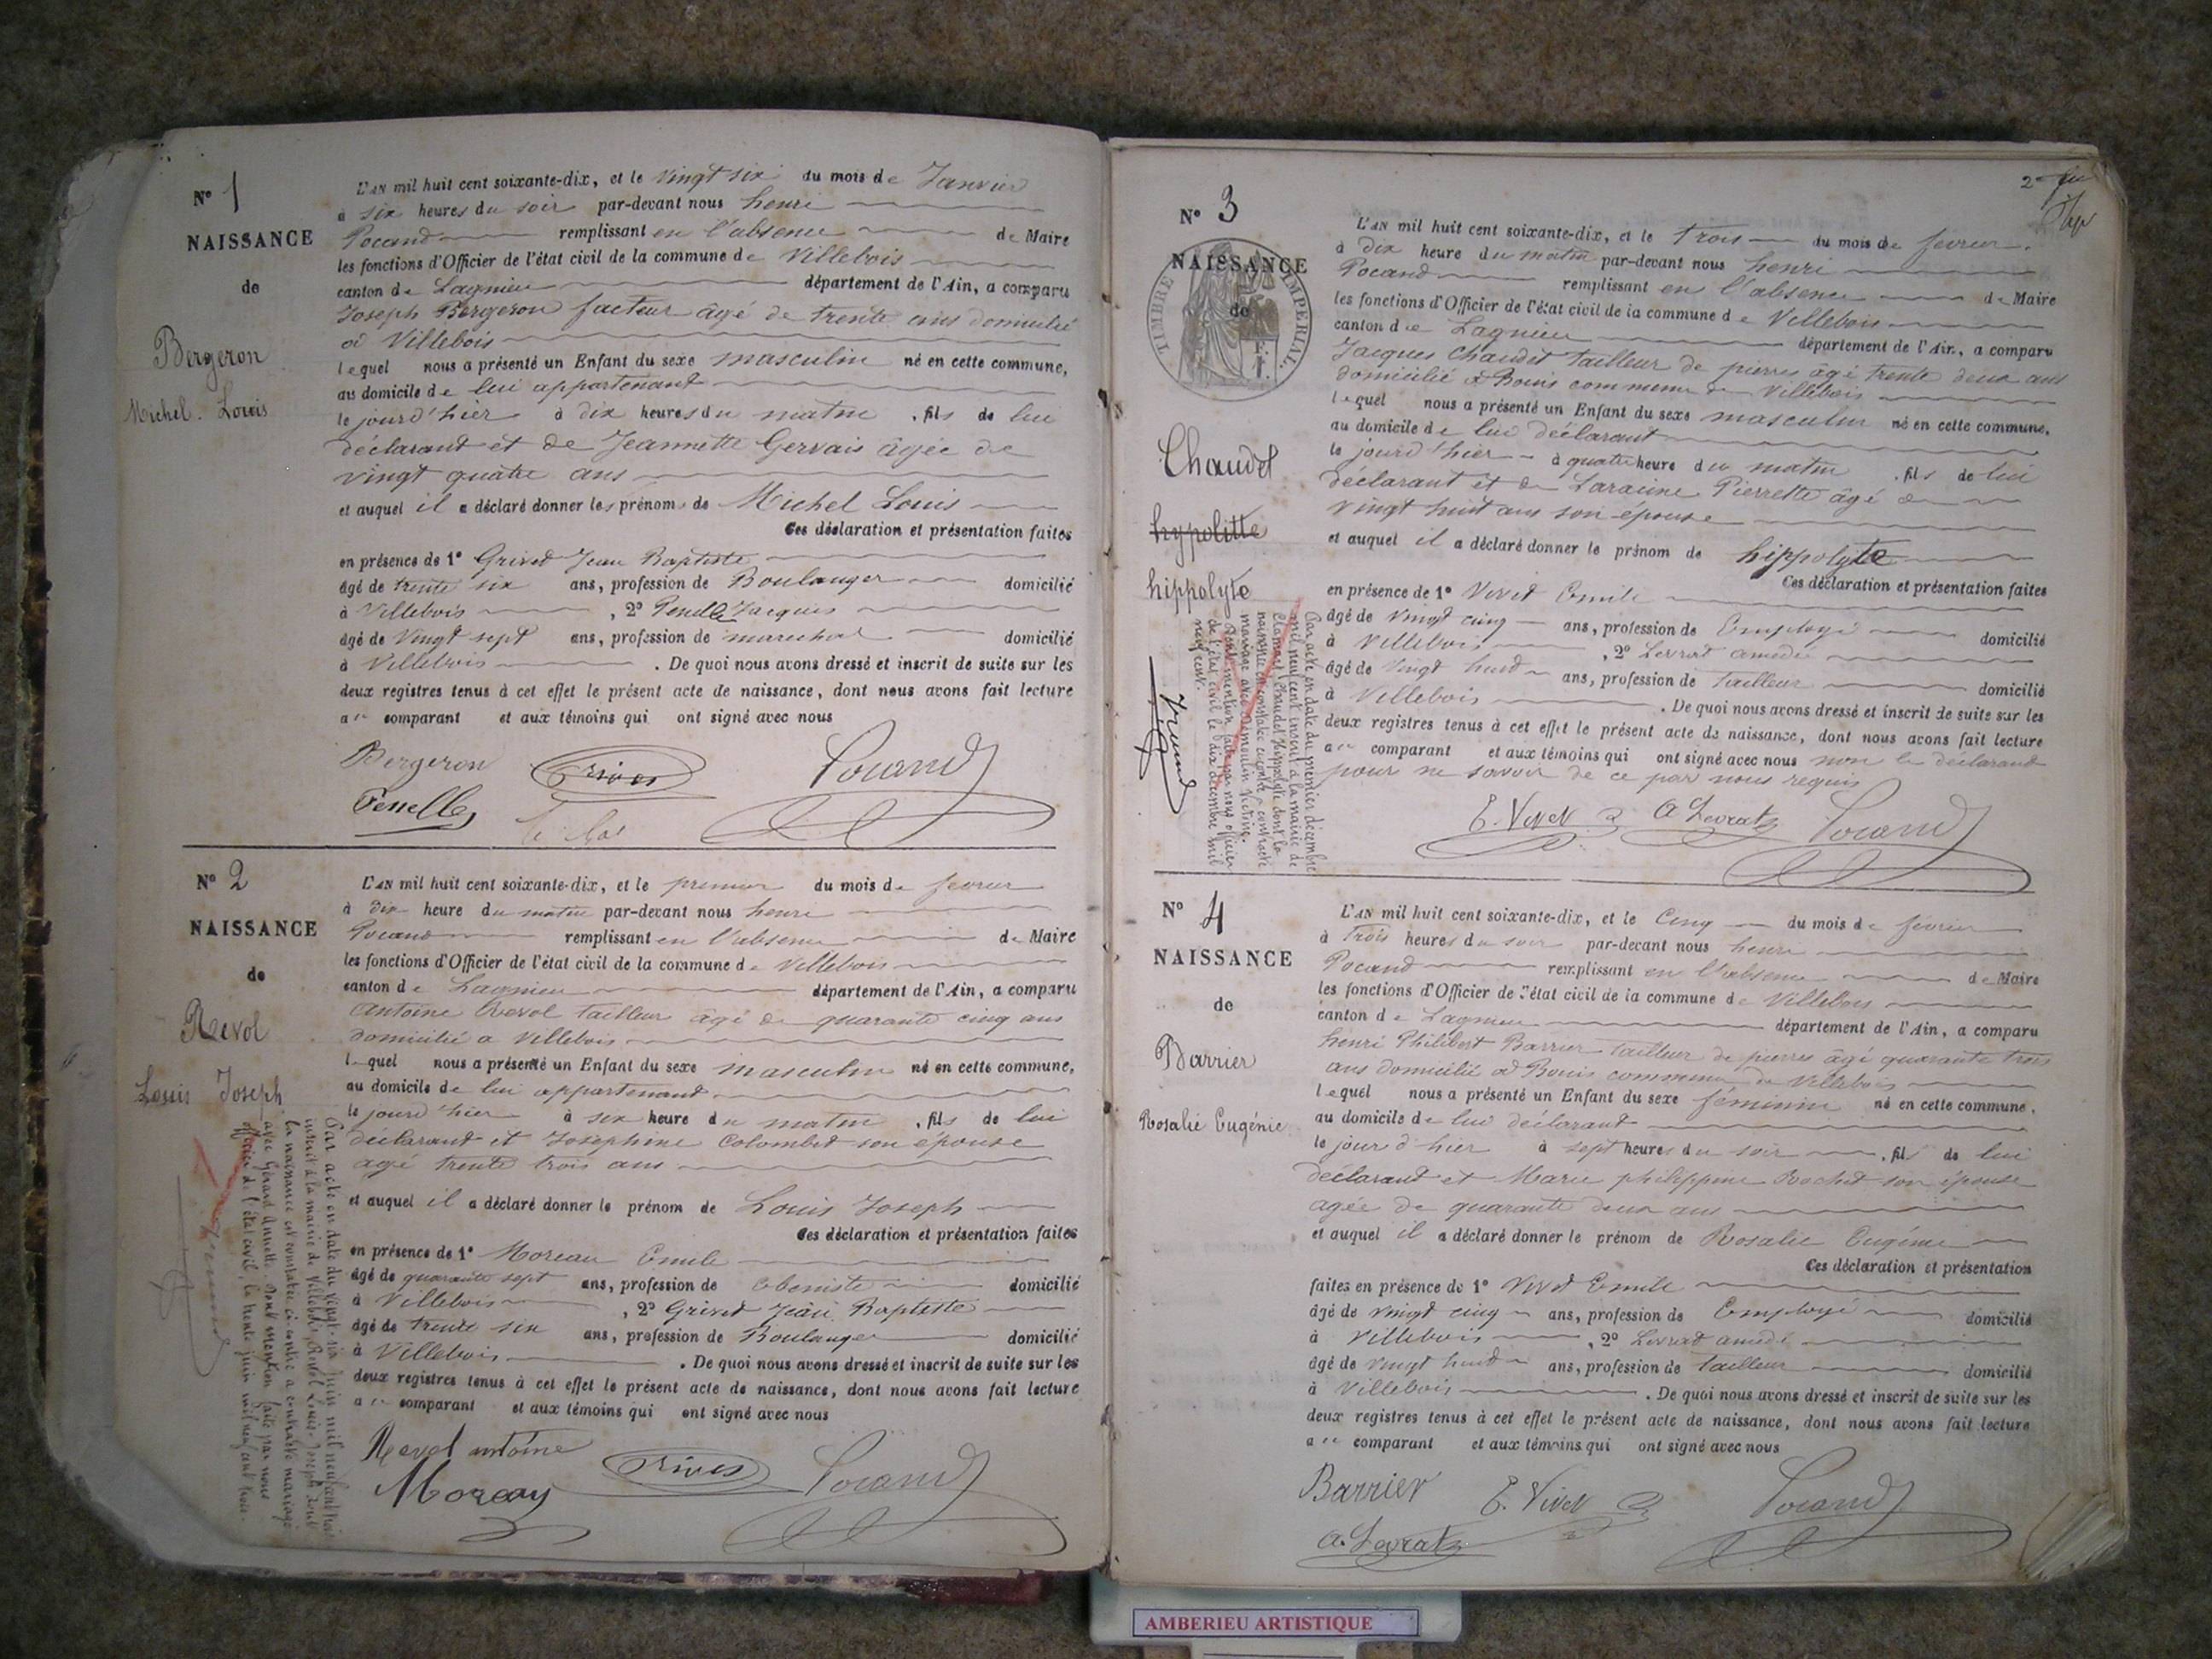 N° 1
NAISSANCE
de
Bergeron
Michel Louis
L'AN mil huit cent soixante-dix, et le vingt six du mois de Janvier
à six heures du soir par-devant nous henri
Pocand remplissant en l'absence de Maire
les fonctions d'Officier de l'état civil de la commune de Villebois
canton de Lagnieu département de l'Ain, a comparu
Joseph Bergeron facteur âgé de trente ans domicilié
à Villebois
lequel nous a présenté un Enfant du sexe masculin né en cette commune,
au domicile de lui appartenant
le jourd'hier à dix heures du matin , fils de lui
déclarant et de Jeannette Gervais âgée de
vingt quatre ans
et auquel il a déclaré donner les prénoms de Michel Louis
Ces déclaration et présentation faites
en présence de 1° Grivet Jean Baptiste
âgé de trente six ans, profession de Boulanger domicilié
à Villebois , 2° Penelle Jacques
âgé de vingt sept ans, profession de marechal domicilié
à Villebois . De quoi nous avons dressé et inscrit de suite sur les
deux registres tenus à cet effet le présent acte de naissance, dont nous avons fait lecture
au comparant et aux témoins qui ont signé avec nous
Bergeron Grivet Pocand
Penelle
N° 2
NAISSANCE
de
Revol
Louis Joseph
L'AN mil huit cent soixante-dix, et le premier du mois de fevrier
à dix heure du matin par-devant nous henri
Pocand remplissant en l'absence de Maire
les fonctions d'Officier de l'état civil de la commune de Villebois
canton de Lagnieu département de l'Ain, a comparu
Antoine Revol tailleur âgé de quarante cinq ans
domicilié a Villebois
lequel nous a présenté un Enfant du sexe masculin né en cette commune,
au domicile de lui appartenant
le jourd'hier à six heure du matin , fils de lui
déclarant et Josephine Colombet son épouse
agé trente trois ans
et auquel il a déclaré donner le prénom de Louis Joseph
Ces déclaration et présentation faites
en présence de 1° Moreau Emile
âgé de quarante sept ans, profession de ebeniste domicilié
à Villebois , 2° Grivet Jean Baptiste
âgé de trente six ans, profession de Boulanger domicilié
à Villebois . De quoi nous avons dressé et inscrit de suite sur les
deux registres tenus à cet effet le présent acte de naissance, dont nous avons fait lecture
au comparant et aux témoins qui ont signé avec nous
Revol antoine Grivet Pocand
Moreau
Par acte en date du vingt-six juin mil neuf cent trois
inscrit à la mairie de Villebois, Revol Louis-Joseph dont
la naissance est constatée ci-contre a contracté mariage
avec Gérard Annette. Dont mention faite par nous
officier de l'état civil, le trente juin mil neuf cent trois.
2e
N° 3
NAISSANCE
de
TIMBRE IMPERIAL
Chaudet
hypolitte
hippolyte
L'AN mil huit cent soixante-dix, et le trois du mois de fevrier
à dix heure du matin par-devant nous henri
Pocand remplissant en l'absence de Maire
les fonctions d'Officier de l'état civil de la commune de Villebois
canton de Lagnieu département de l'Ain, a comparu
Jacques Chaudet tailleur de pierres âgé trente deux ans
domicilié à Bouis commune de Villebois
lequel nous a présenté un Enfant du sexe masculin né en cette commune,
au domicile de lui déclarant
le jourd'hier à quatre heure du matin , fils de lui
déclarant et de Laracine Pierrette âgé de
vingt huit ans son épouse
et auquel il a déclaré donner le prénom de hippolyte
Ces déclaration et présentation faites
en présence de 1° Vivet Emile
âgé de vingt cinq ans, profession de Employé domicilié
à Villebois , 2° Levrat amedé
âgé de vingt huit ans, profession de tailleur domicilié
à Villebois . De quoi nous avons dressé et inscrit de suite sur les
deux registres tenus à cet effet le présent acte de naissance, dont nous avons fait lecture
au comparant et aux témoins qui ont signé avec nous non le déclarant
pour ne savoir de ce par nous requis
E. Vivet A Levrat Pocand
Par acte en date du premier décembre
mil neuf cent inscrit à la mairie de
Chaudet Hippolyte dont la
naissance est constatée ci-contre a contracté
mariage avec
Dont mention faite par nous officier
de l'état civil le dix décembre mil
neuf cent.
N° 4
NAISSANCE
de
Barrier
Rosalie Eugénie
L'AN mil huit cent soixante-dix, et le Cinq du mois de février
à trois heures du soir par-devant nous henri
Pocand remplissant en l'absence de Maire
les fonctions d'Officier de l'état civil de la commune de Villebois
canton de Lagnieu département de l'Ain, a comparu
henri Philibert Barrier tailleur de pierres âgé quarante trois
ans domicilié à Bouis commune de Villebois
lequel nous a présenté un Enfant du sexe féminin né en cette commune,
au domicile de lui déclarant
le jourd'hier à sept heures du soir , fils de lui
déclarant et Marie philippine Rochet son épouse
agée de quarante deux ans
et auquel il a déclaré donner le prénom de Rosalie Eugénie
Ces déclaration et présentation
faites en présence de 1° Vivet Emile
âgé de vingt cinq ans, profession de Employé domicilié
à Villebois , 2° Levrat amedé
âgé de vingt huit ans, profession de tailleur domicilié
à Villebois . De quoi nous avons dressé et inscrit de suite sur les
deux registres tenus à cet effet le présent acte de naissance, dont nous avons fait lecture
au comparant et aux témoins qui ont signé avec nous
Barrier E. Vivet Pocand
A. Levrat
AMBERIEU ARTISTIQUE